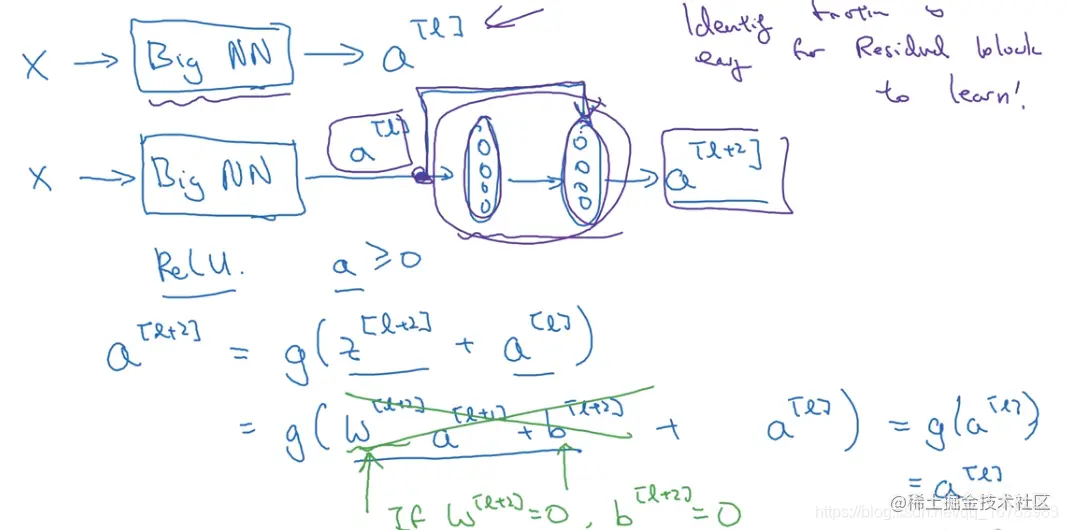 X → Big NN → a^[l]
Identity function is
easy for Residual block
to learn!
X → Big NN a^[l] → → a^[l+2]
ReLU. a ≥ 0
a^[l+2] = g(z^[l+2] + a^[l])
= g(W^[l+2] a^[l+1] + b^[l+2] + a^[l]) = g(a^[l])
= a^[l]
If W^[l+2] = 0, b^[l+2] = 0
@稀土掘金技术社区